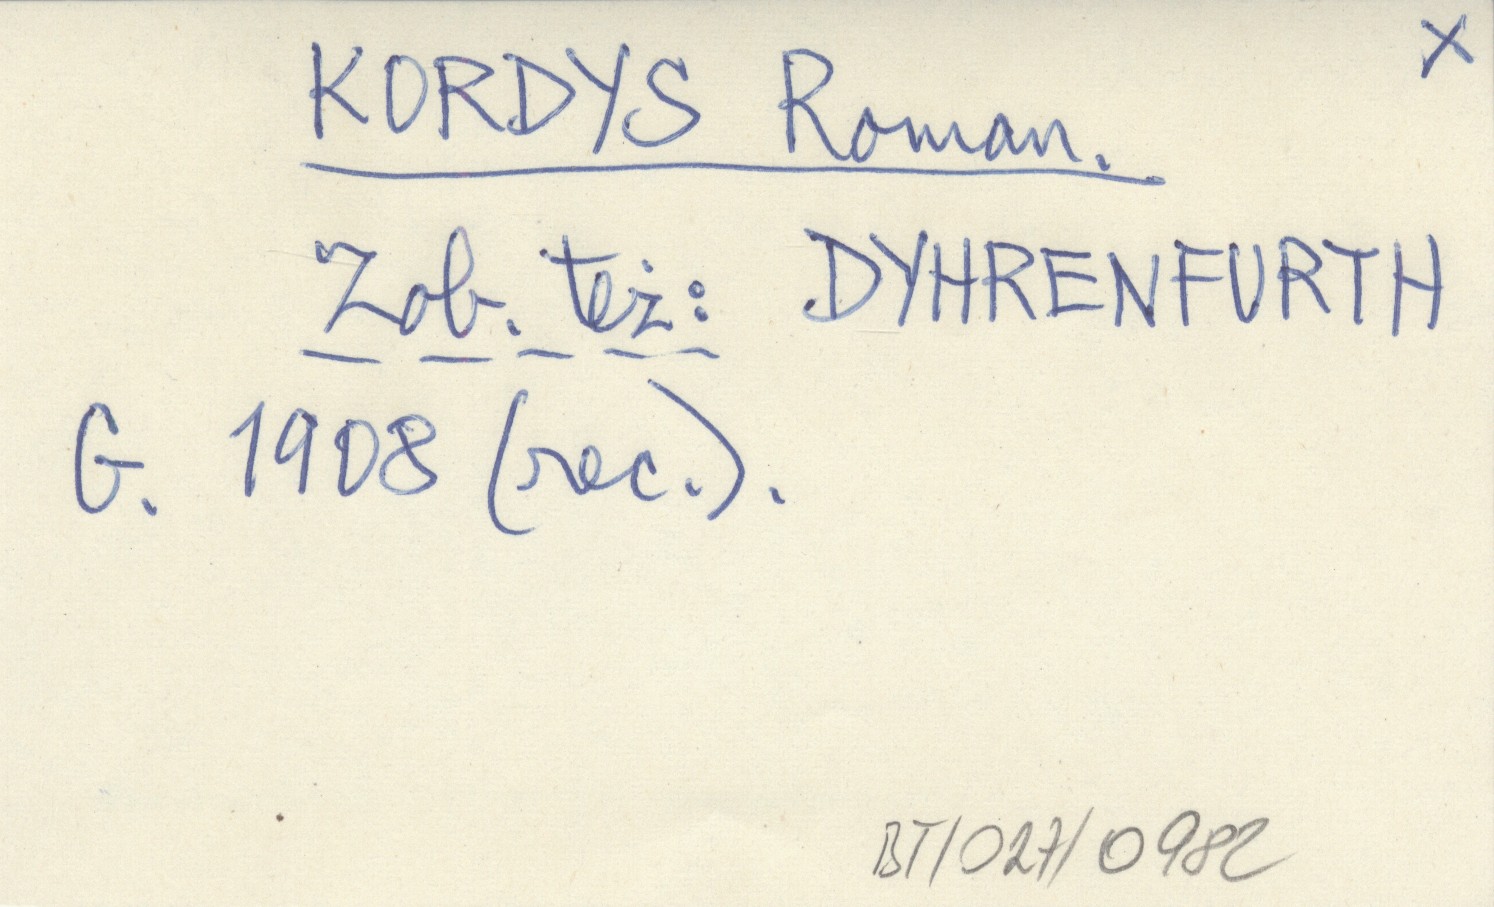 X
KORDYS Roman.
Zob. też: DYHRENFURTH
G. 1908 (rec.).
BT/027/0982